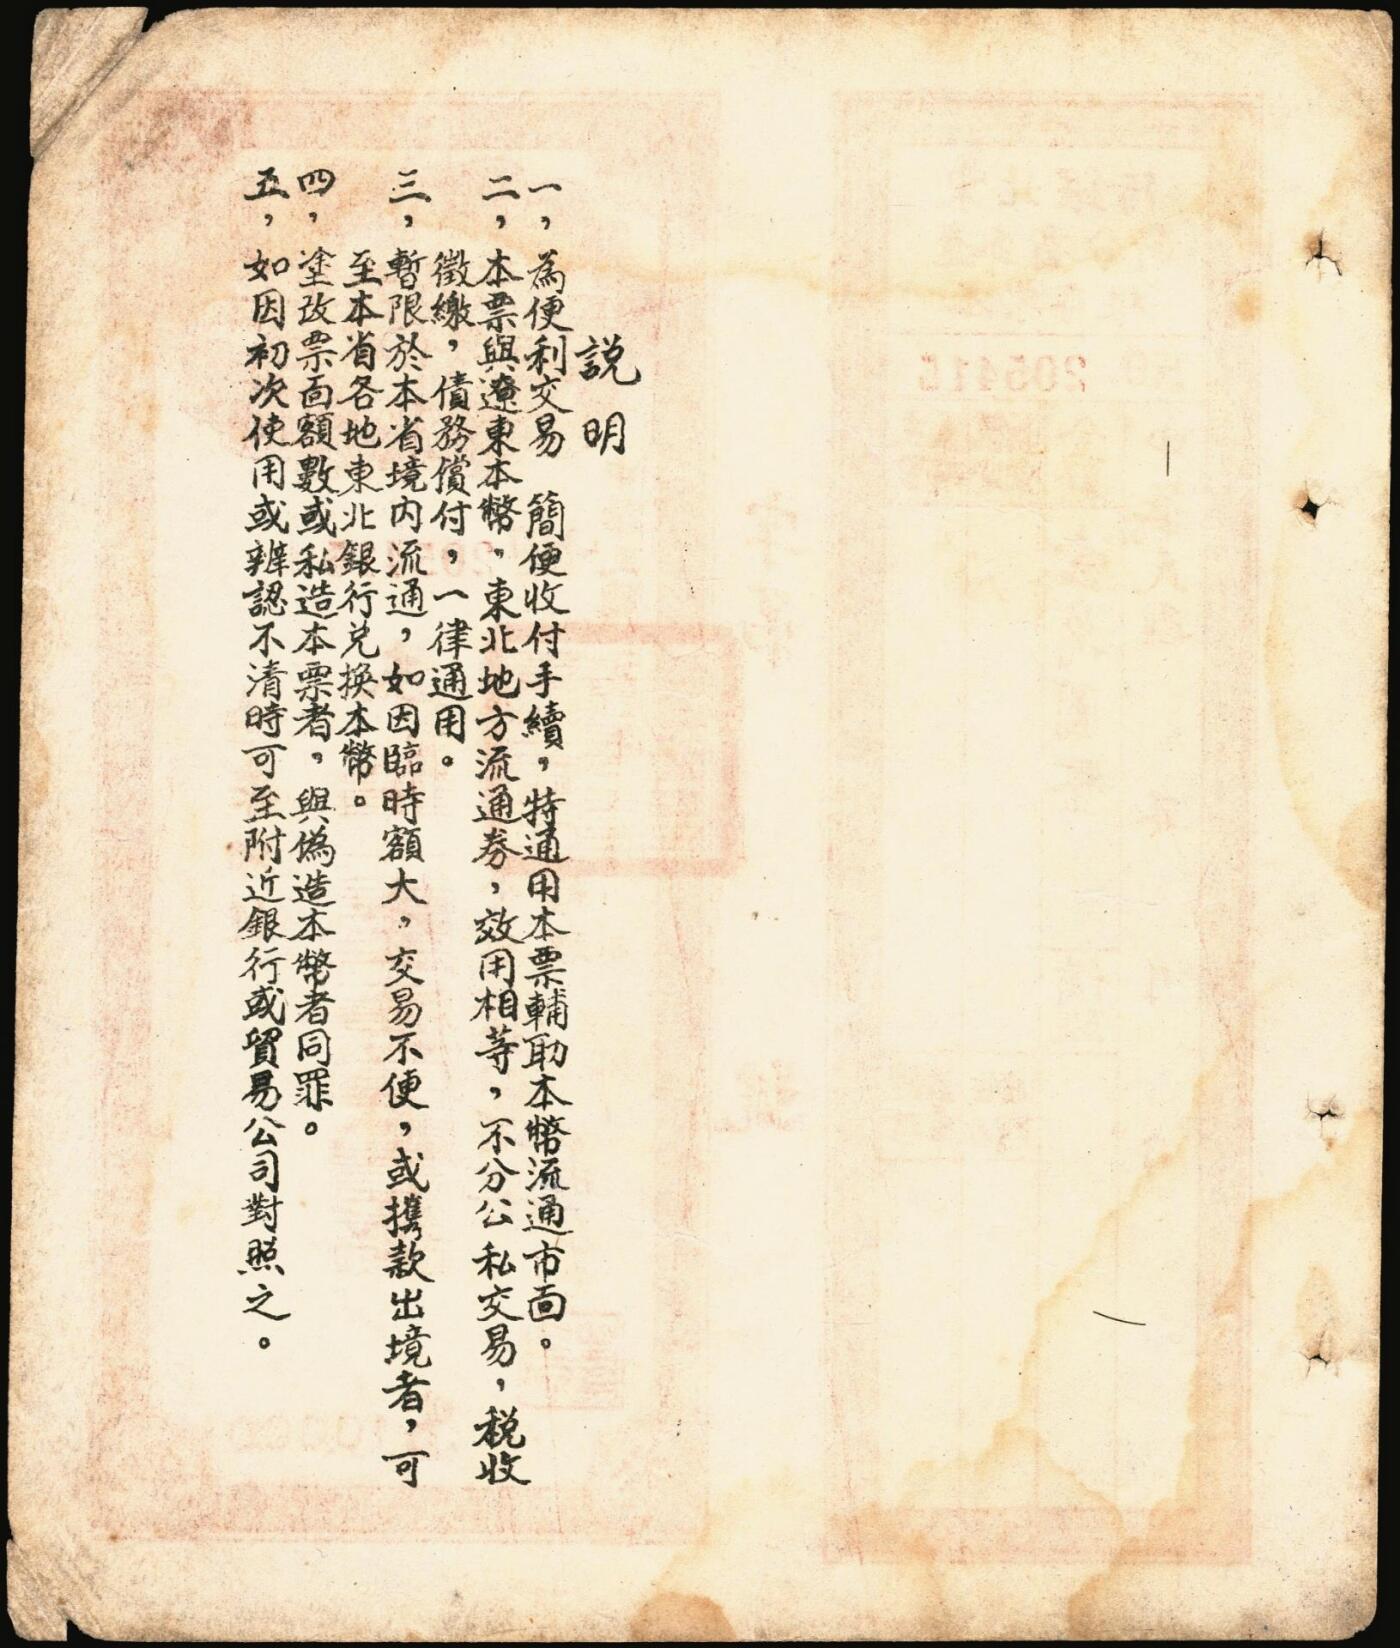 説明
一，為便利交易　簡便收付手續，特通用本票輔助本幣流通市面。
二，本票與遼東本幣，東北地方流通券，效用相等，不分公私交易，税收
徵繳，債務償付，一律通用。
三，暫限於本省境内流通，如因臨時額大，交易不便，或携款出境者，可
至本省各地東北銀行兑換本幣。
四，塗改票面額數或私造本票者，與偽造本幣者同罪。
五，如因初次使用或辨認不清時可至附近銀行或貿易公司對照之。
205415